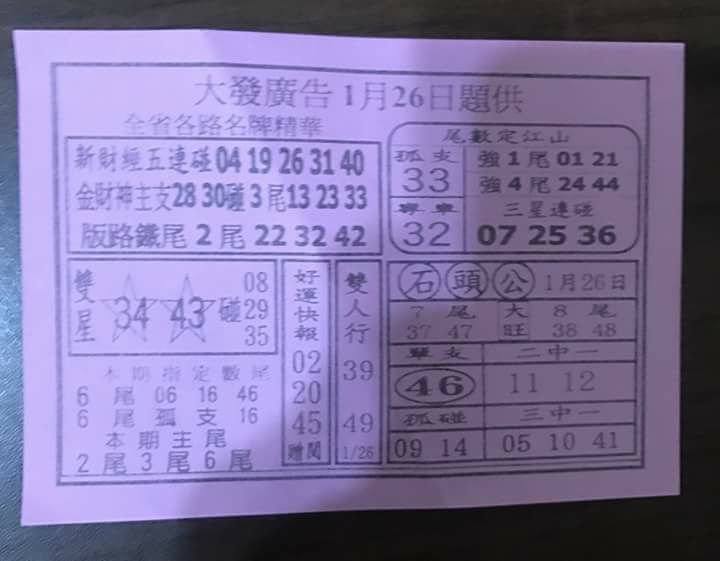 大發廣告1月26日題供
全省各路名牌精華
新財經五連碰04 19 26 31 40
金財神主支28 30碰3尾13 23 33
版路鐵尾2尾22 32 42
尾數定江山
孤支
33
專車
32
強1尾01 21
強4尾24 44
三星連碰
07 25 36
雙星
34 43
碰
08
29
35
本期指定數尾
6尾06 16 46
6尾孤支16
本期主尾
2尾3尾6尾
好運快報
02
20
45
贈閱
雙人行
39
49
1/26
石頭公1月26日
7尾
37 47
大旺
8尾
38 48
單支
46
二中一
11 12
孤碰
09 14
三中一
05 10 41